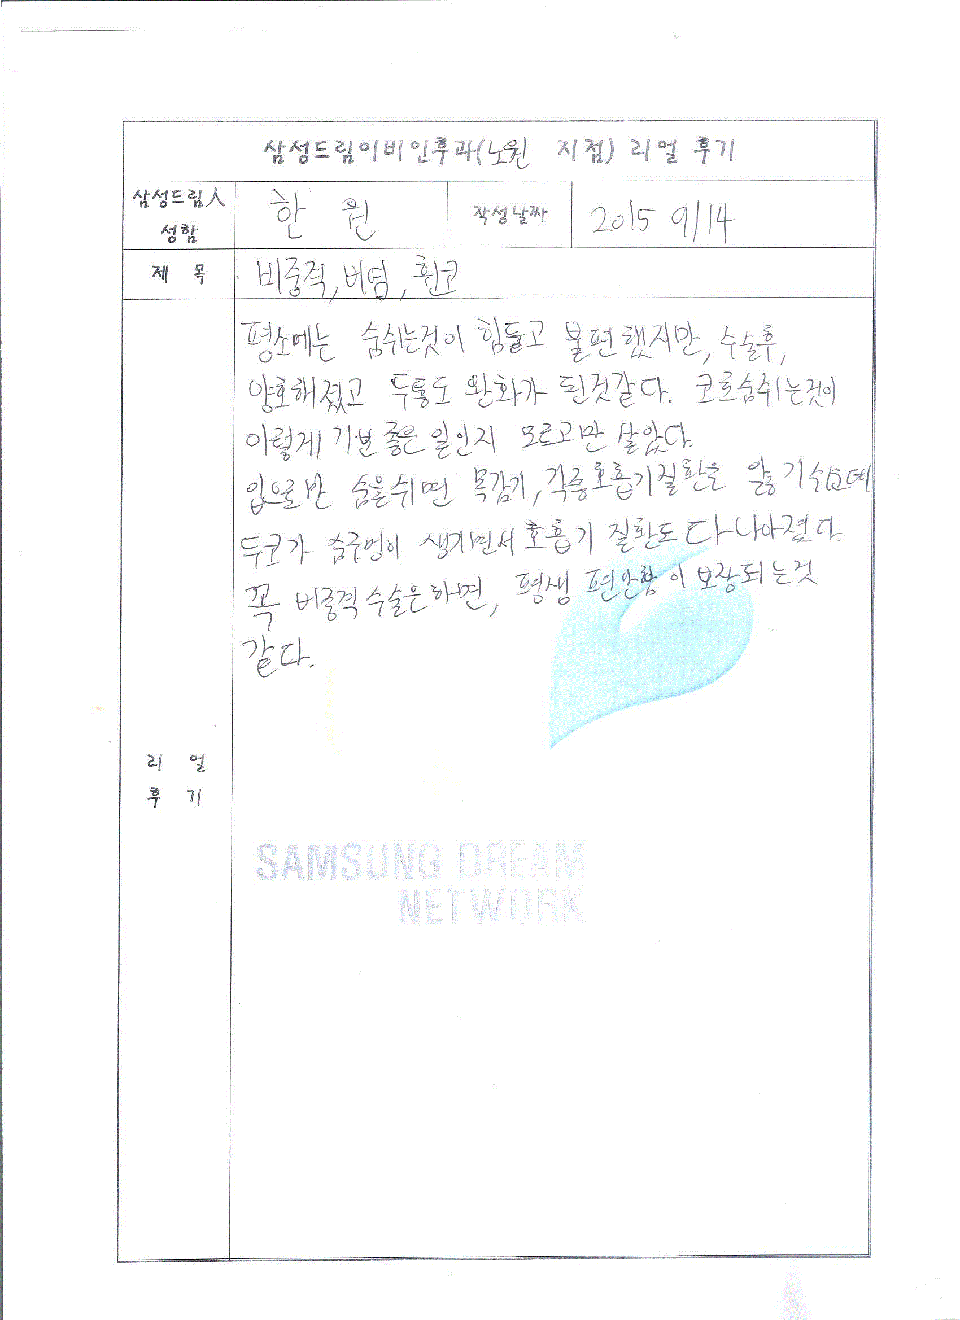 삼성드림이비인후과(노원 지점) 리얼 후기
삼성드림人
성함
한 원
작성날짜
2015 9/14
제 목
비중격, 비염, 휜코
평소에는 숨쉬는것이 힘들고 불편했지만, 수술후,
양호해졌고 두통도 완화가 된것같다. 코로숨쉬는것이
이렇게 기분 좋은 일인지 모르고만 살았다.
입으로만 숨을쉬면 목감기, 각종호흡기질환을
두코가 숨구멍이 생기면서 호흡기 질환도 다 나아졌다.
꼭 비중격수술은하면, 평생 편안함이 보장되는것
같다.
리 얼
후 기
SAMSUNG DREAM
NETWORK